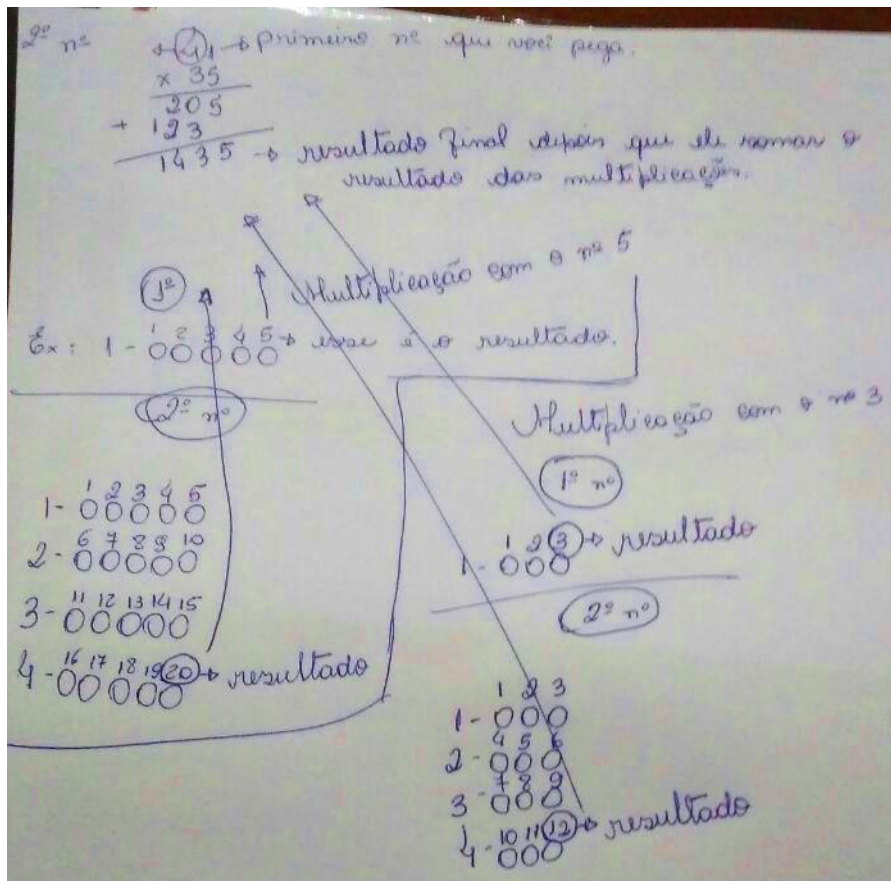 2º nº
41 → primeiro nº que você pega.
x 35
205
+ 123
1435 → resultado final depois que ele somar o
resultado das multiplicações.
1º
Multiplicação com o nº 5
Ex: 1 - 1 2 3 4 5 → esse é o resultado.
2º nº
1- 1 2 3 4 5
2- 6 7 8 9 10
3- 11 12 13 14 15
4- 16 17 18 19 20 → resultado
Multiplicação com o nº 3
1º nº
1- 1 2 3 → resultado
2º nº
1- 1 2 3
2- 4 5 6
3- 7 8 9
4- 10 11 12 → resultado